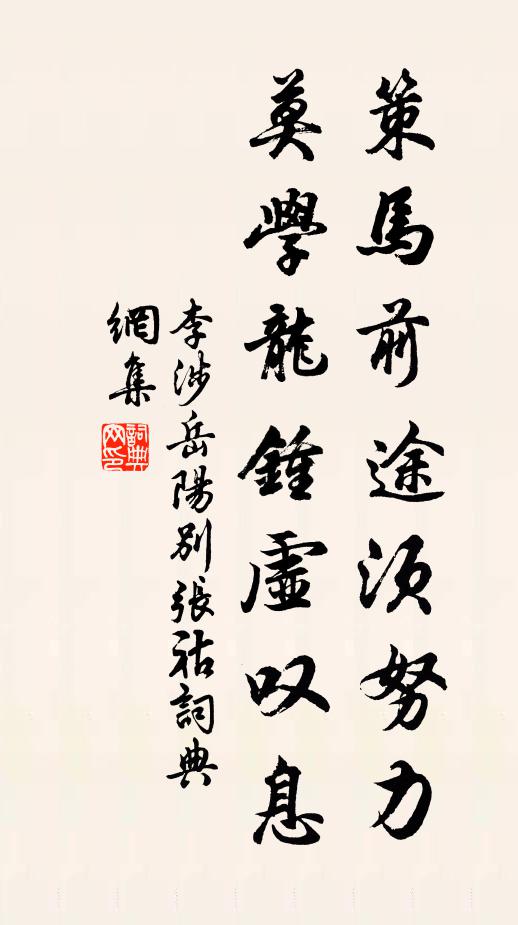 策馬前途須努力
莫學龍鍾虛叹息
李涉岳陽別張祜詞典
網集
詞典
网印